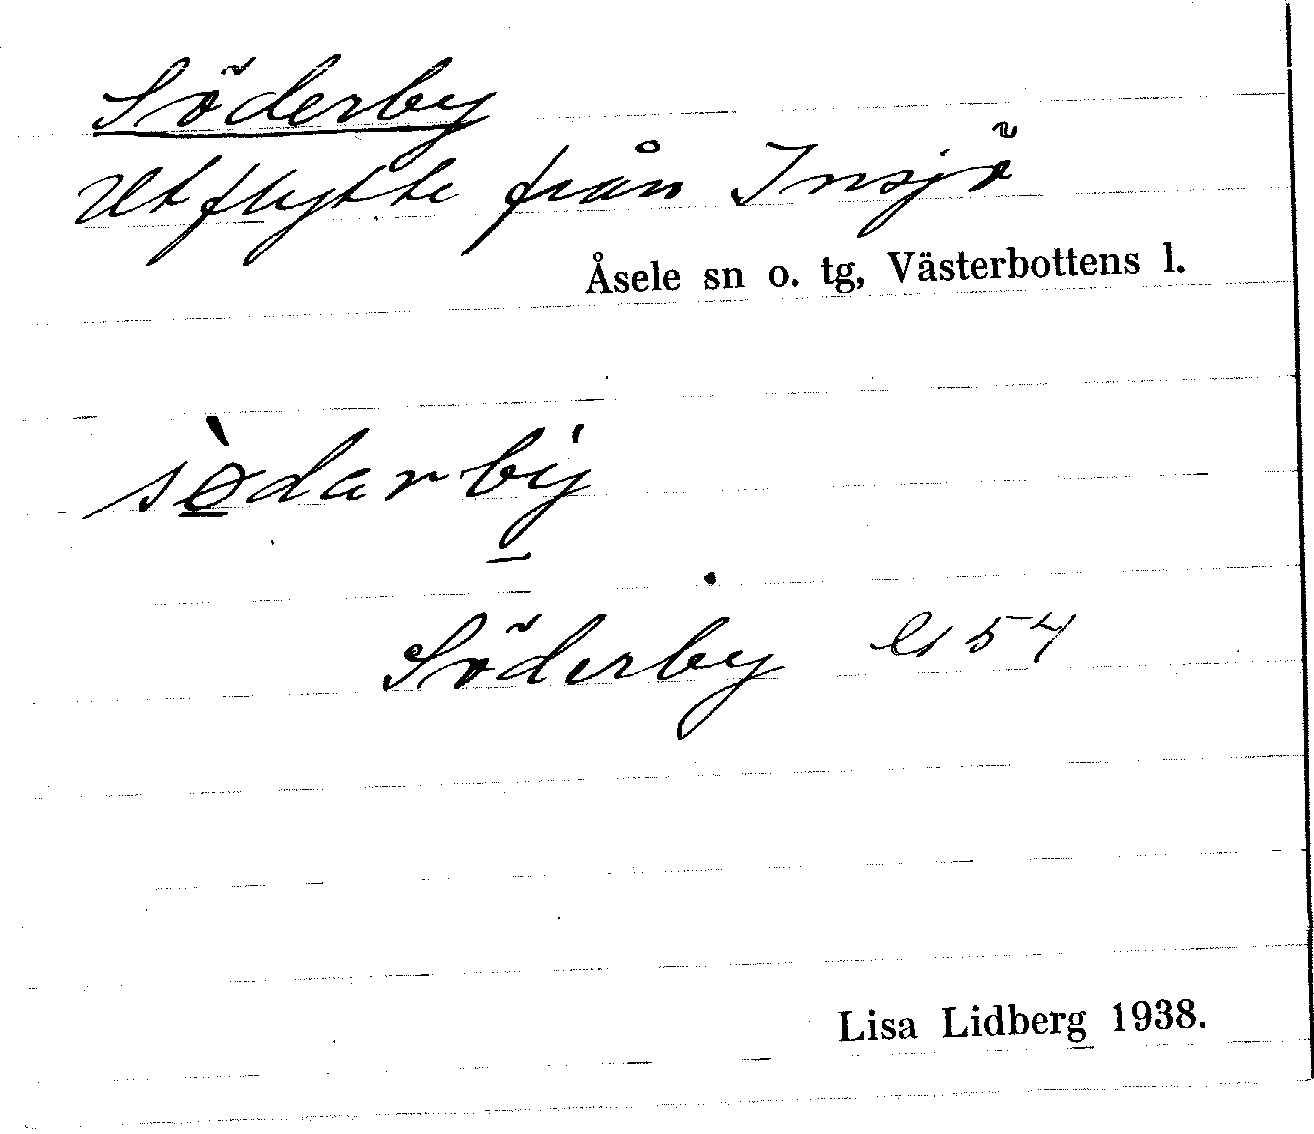 Söderby
Utflytte från Insjö
Åsele sn o. tg, Västerbottens l.
sòdarby
Söderby ls 54
Lisa Lidberg 1938.